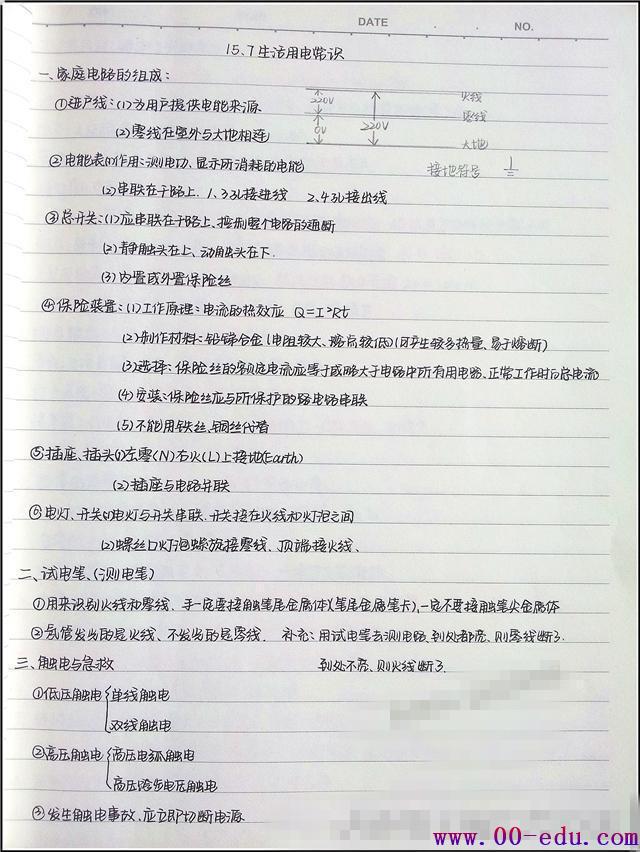 DATE NO.
15.7生活用电常识
一、家庭电路的组成：
①进户线：(1)为用户提供电能来源
220V 火线
零线
(2)零线在室外与大地相连
0V 220V 大地
②电能表(1)作用：测电功、显示所消耗的电能
接地符号
(2)串联在干路上. 1、3孔接进线 2、4孔接出线
③总开关：(1)应串联在干路上、控制整个电路的通断
(2)静触头在上、动触头在下.
(3)内置或外置保险丝
④保险装置：(1)工作原理：电流的热效应 Q=I²Rt
(2)制作材料：铅锑合金(电阻较大、熔点较低)(可产生较多热量、易于熔断)
(3)选择：保险丝的额定电流应等于或略大于电路中所有用电路、正常工作时的总电流
(4)安装：保险丝应与所保护的路电路串联
(5)不能用铁丝、铜丝代替
⑤插座、插头(1)左零(N)右火(L)上接地(Earth)
(2)插座与电路并联
⑥电灯、开关(1)电灯与开关串联.开关接在火线和灯泡之间
(2)螺丝口灯泡螺旋接零线、顶端接火线、
二、试电笔、(测电笔)
①用来识别火线和零线、手一定要接触笔尾金属体(笔尾金属笔卡),一定不要接触笔尖金属体
②氖管发光的是火线、不发光的是零线. 补充：用试电笔去测电路、到处都亮、则零线断了.
三、触电与急救 到处不亮、则火线断了.
①低压触电 单线触电
双线触电
②高压触电 高压电弧触电
高压跨步电压触电
③发生触电事故、应立即切断电源
www.00-edu.com